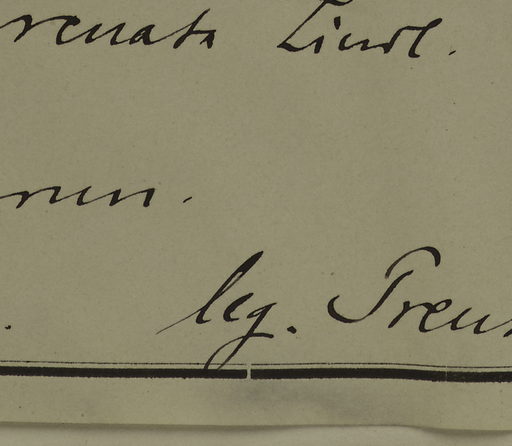 renata Lindl.
nen.
leg. Treu